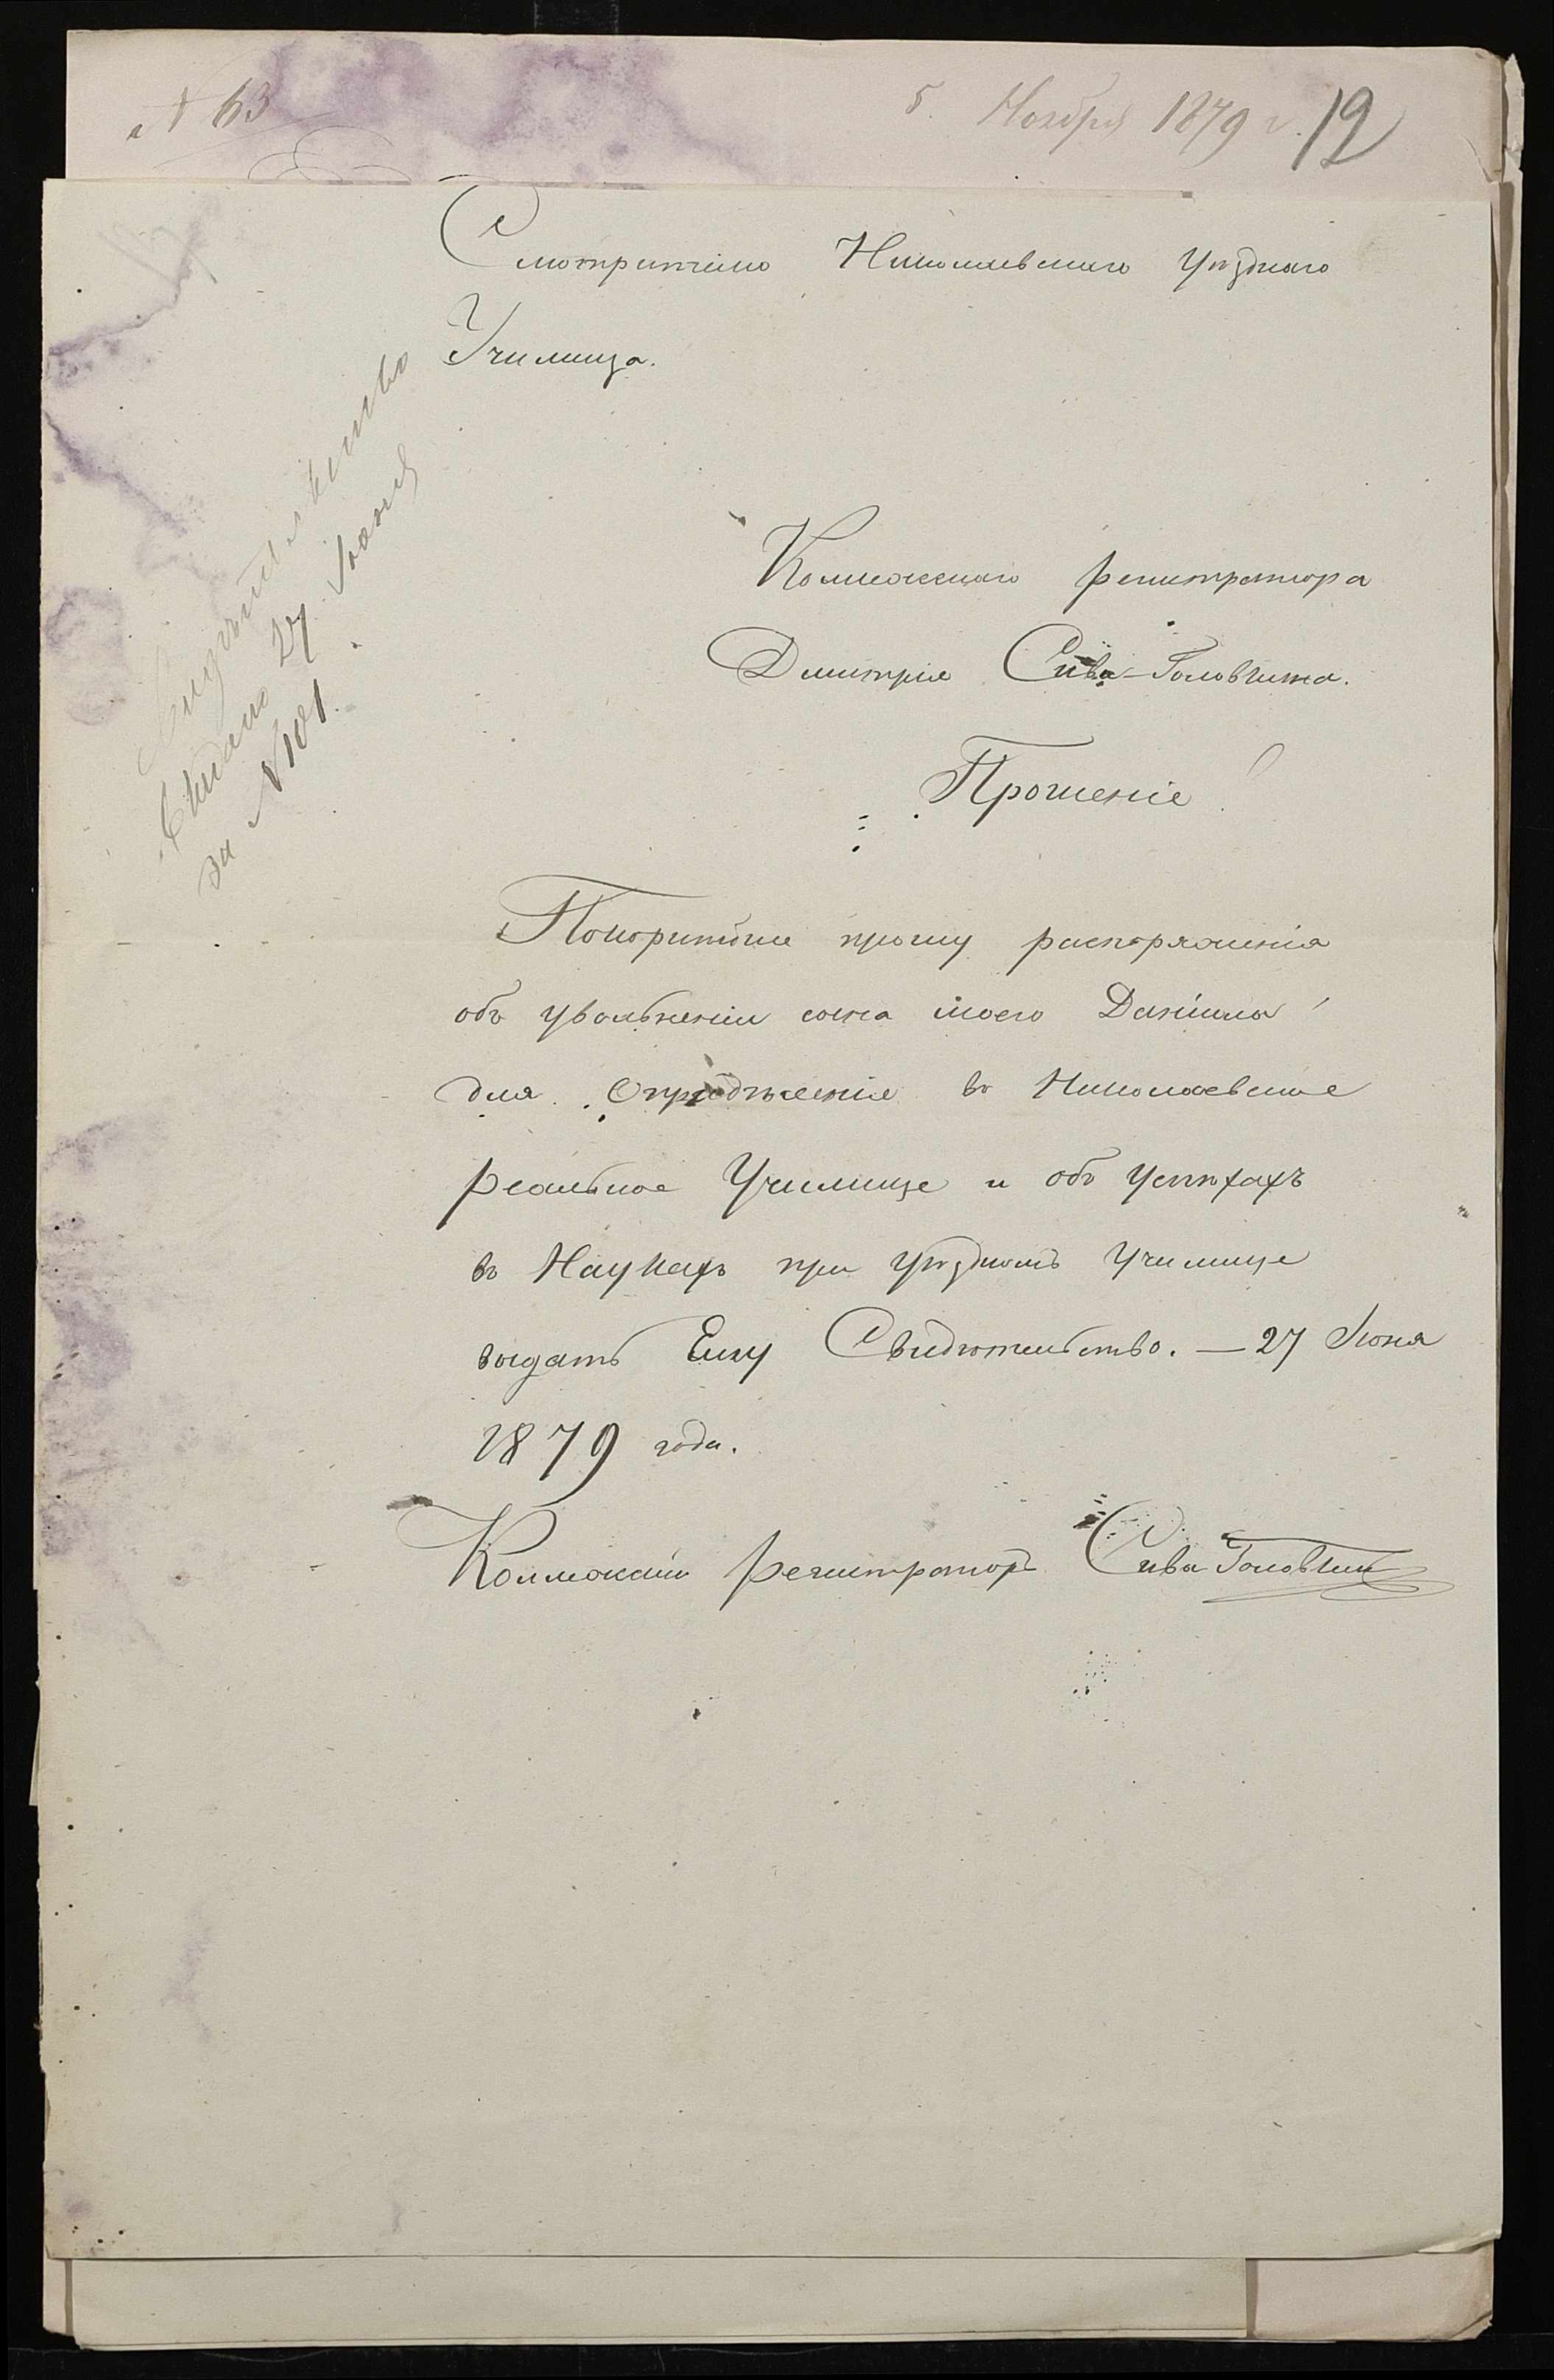 № 63
5. Ноября 1879 г. 12
Смотрителю Николаевскаго Уѣзднаго
Училища.
Коллежскаго Регистратора
Дмитрія Сива-Головкина.
Прошеніе
Свидѣтельство
выдано 27 Іюня
за № 101.
Покорнѣйше прошу распоряженія
объ увольненіи сына моего Даніила
для Опредѣленія въ Николаевское
реальное Училище и объ успѣхахъ
въ Наукахъ при уѣздномъ Училище
выдать Ему Свидѣтельство. — 27 Іюня
1879 года.
Коллежскій Регистраторъ Сива-Головкинъ